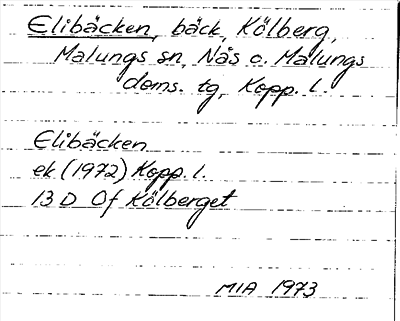 Elibäcken, bäck, Kölberg,
Malungs sn, Nås o. Malungs
doms. tg, Kopp. l.
Elibäcken
ek (1972) Kopp. l.
13 D Of Kölberget
MIA 1973